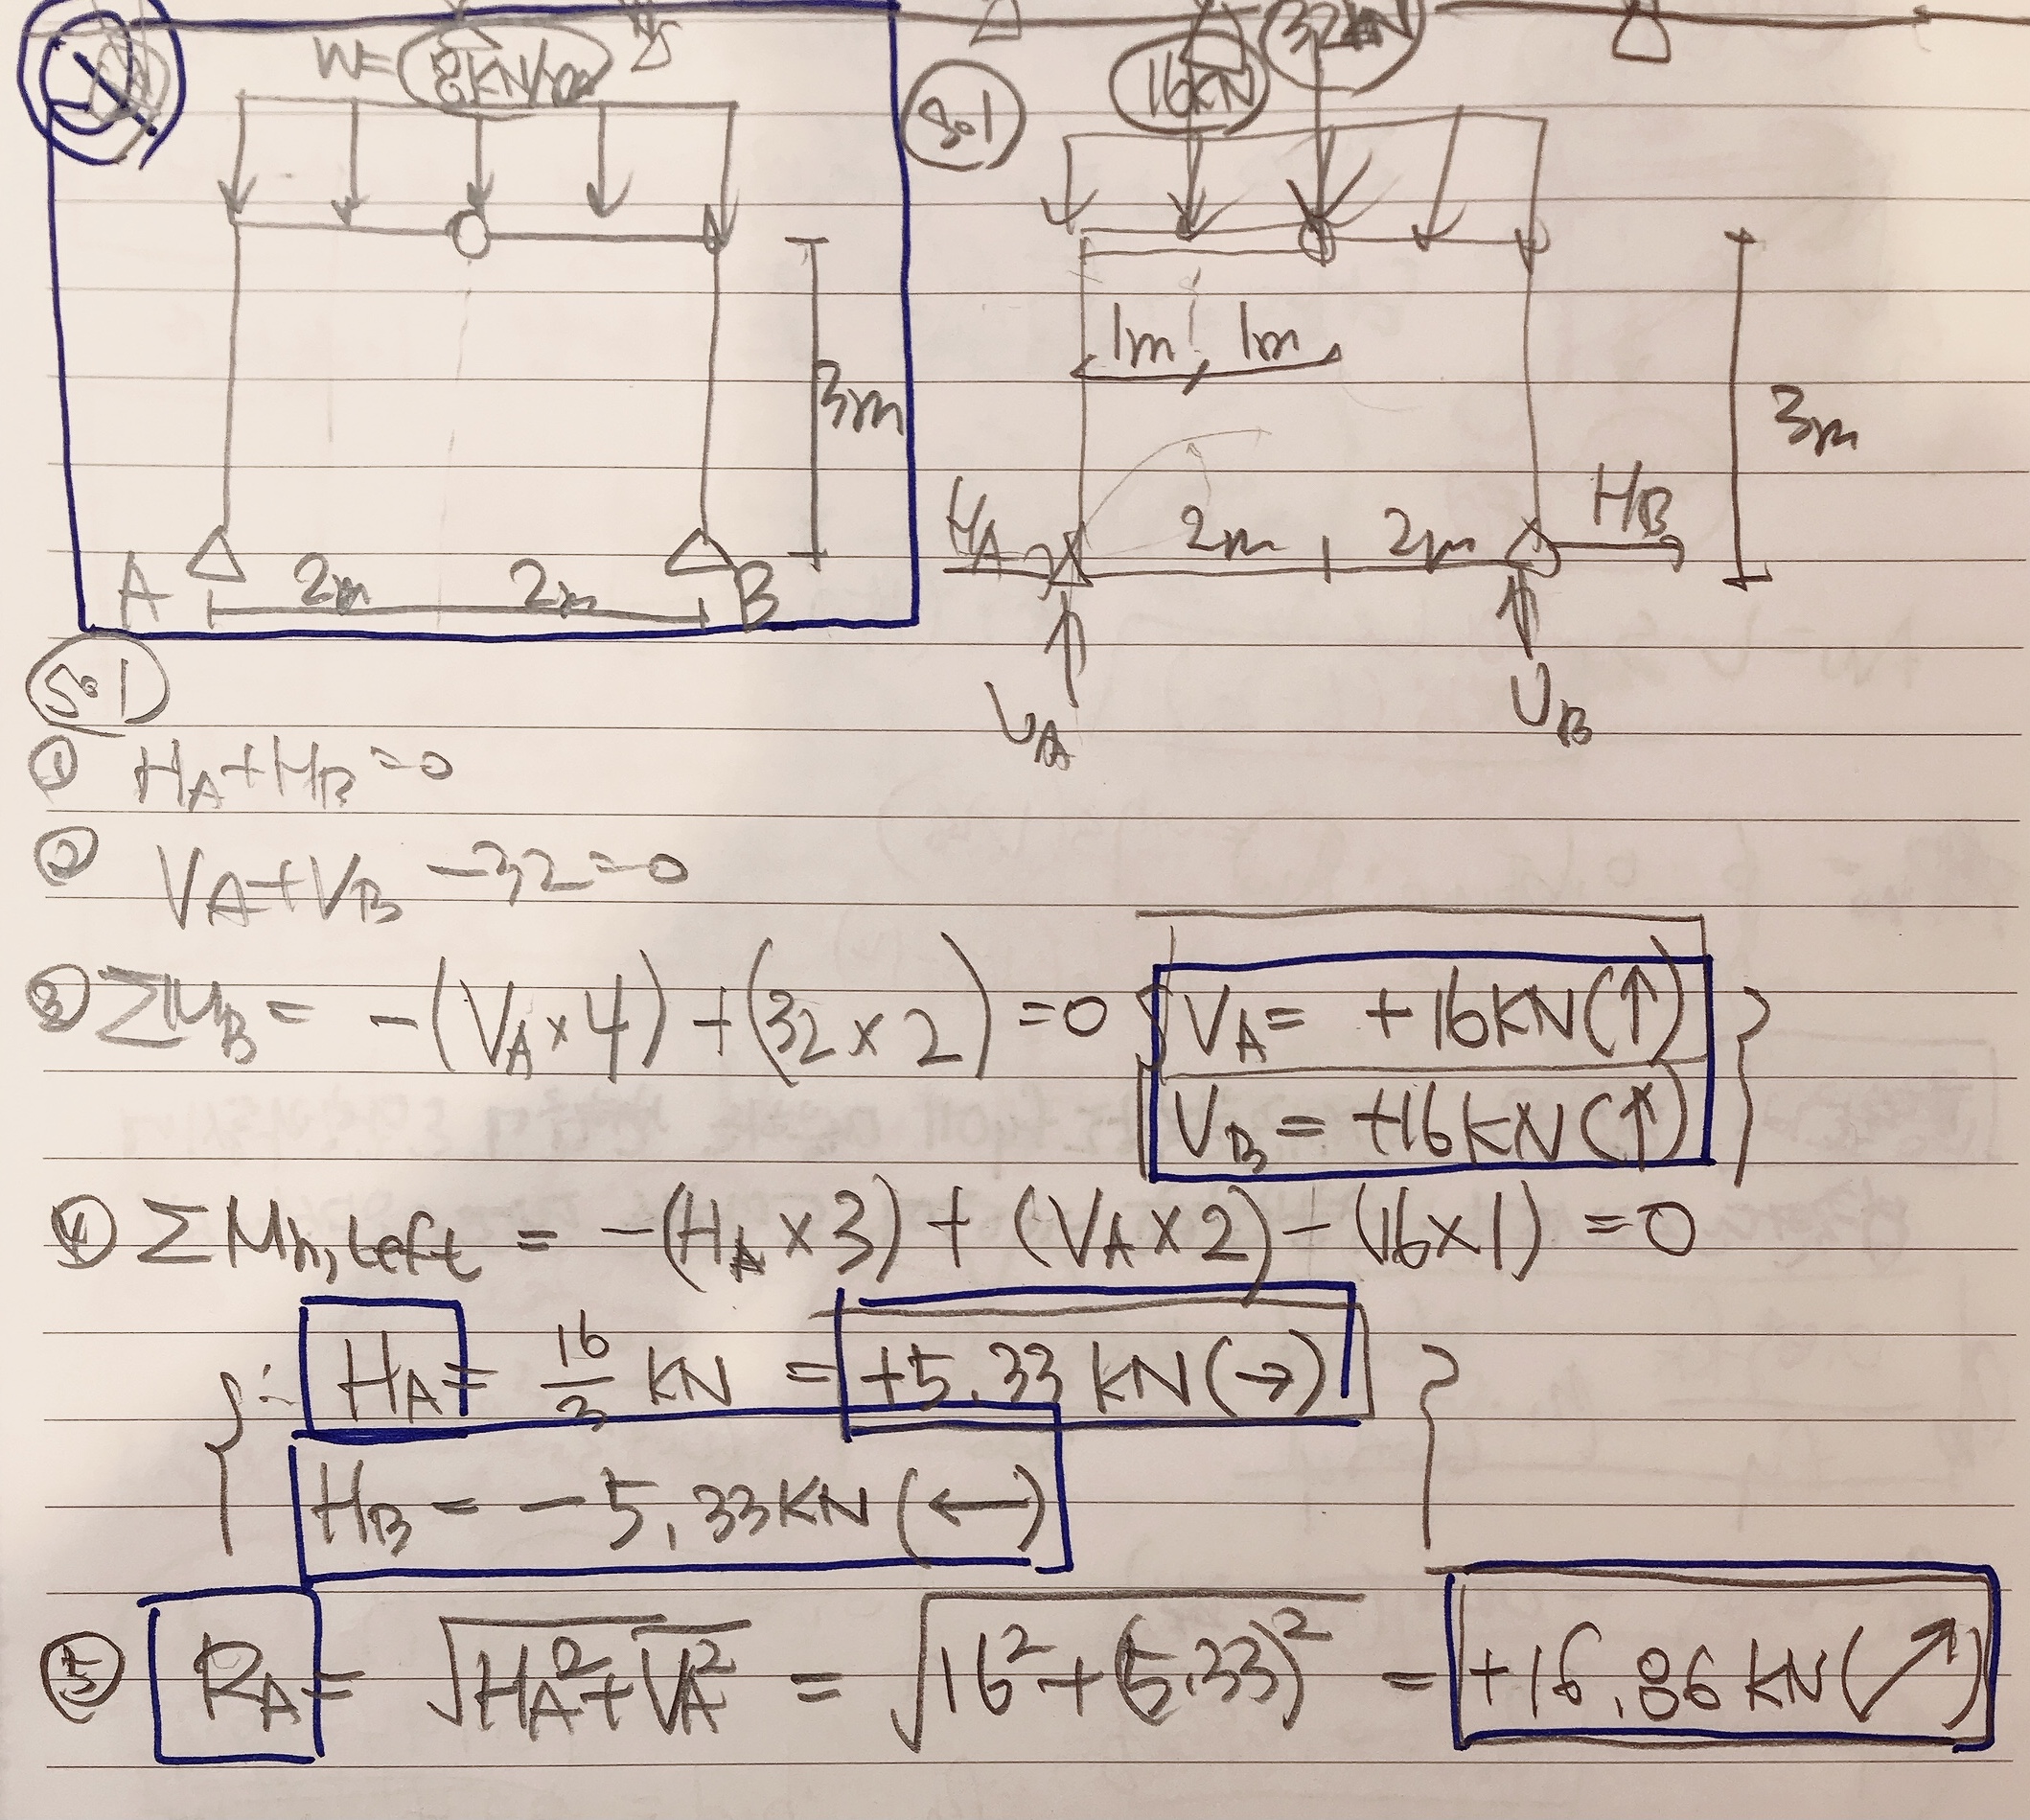 W= 8KN/m
3m
A 2m 2m B
Sol
16KN 32kN
1m 1m
3m
HA 2m 2m HB
VA VB
Sol
① HA+HB=0
② VA+VB-32=0
③ ΣMB= -(VA×4)+(32×2)=0 VA= +16KN(↑)
VB=+16KN(↑)
④ ΣMh,Left = -(HA×3)+(VA×2)-(16×1)=0
∴ HA= 16/3 KN = +5.33 KN(→)
HB= -5.33KN(←)
⑤ RA= √HA²+VA² = √16²+(5.33)² = +16.86KN(↗)